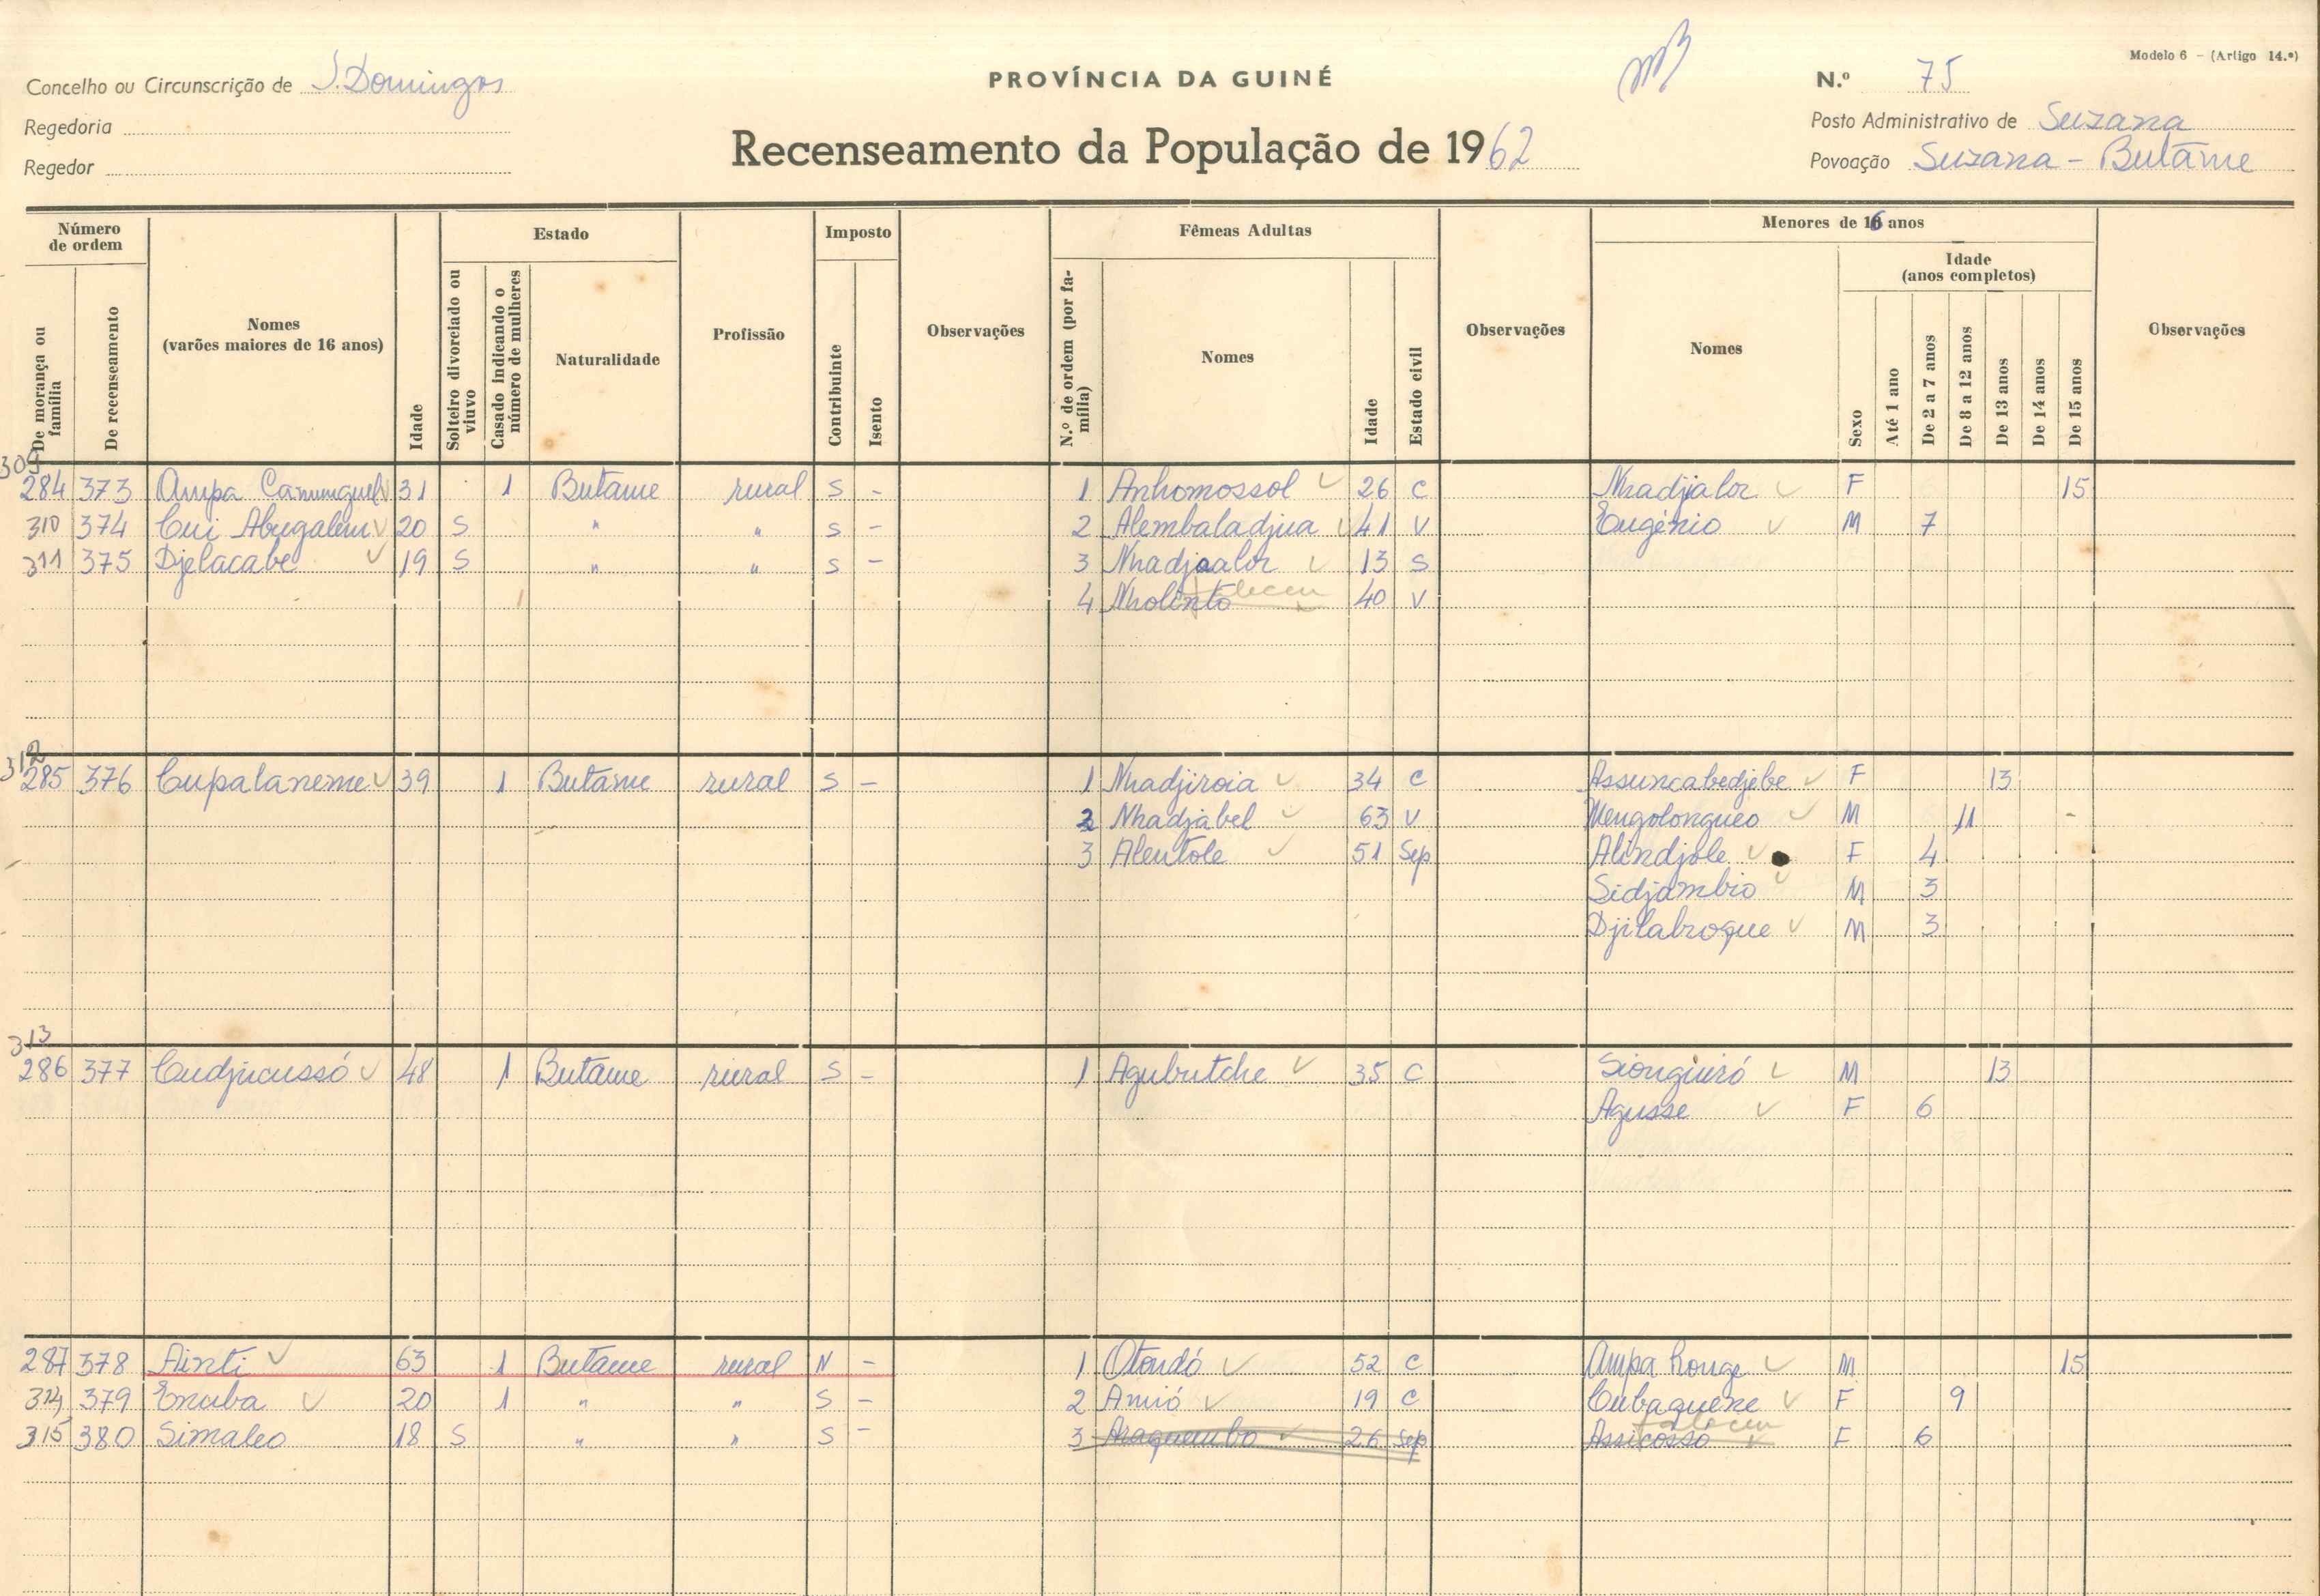 Modelo 6 – (Artigo 14.º)
Concelho ou Circunscrição de S. Domingos
PROVÍNCIA DA GUINÉ
N.º 75
Regedoria
Posto Administrativo de Suzana
Recenseamento da População de 1962
Regedor
Povoação Suzana - Butâme
Número de ordem
Estado
Imposto
Fêmeas Adultas
Menores de 16 anos
Idade (anos completos)
De morança ou família
De recenseamento
Nomes (varões maiores de 16 anos)
Idade
Solteiro divorciado ou viuvo
Casado indicando o número de mulheres
Naturalidade
Profissão
Contribuinte
Isento
Observações
N.º de ordem (por família)
Nomes
Idade
Estado civil
Observações
Nomes
Sexo
Até 1 ano
De 2 a 7 anos
De 8 a 12 anos
De 13 anos
De 14 anos
De 15 anos
Observações
309
284 373 Ampa 31 1 Butame rural S - 1 Anhomossol 26 C Nhadjalor F 15
310 374 Cui Abugalem 20 S " " S - 2 Alembaladjua 41 V Eugénio M 7
311 375 Djelacabe 19 S " " S - 3 Nhadjaalor 13 S
4 Nholinto faleceu 40 V
312
285 376 Cupalaneme 39 1 Butame rural S - 1 Nhadjiroia 34 C Assuncabedjebe F 13
2 Nhadjabel 63 V Mengolongueo M 11
3 Aleutole 51 Sep Alindjole F 4
Sidjambio M 3
Djilabroque M 3
313
286 377 Cudjucussó 48 1 Butame rural S - 1 Agubutche 35 C Sionguiró M 13
Agusse F 6
287 378 Ainti 63 1 Butame rural N - 1 Otondó 52 C Ampa Honge M 15
314 379 Encuba 20 1 " " S - 2 Amió 19 C Cubaquene F 9
315 380 Simaleo 18 S " " S - 3 Araquembo 26 Sep Assicosso faleceu F 6